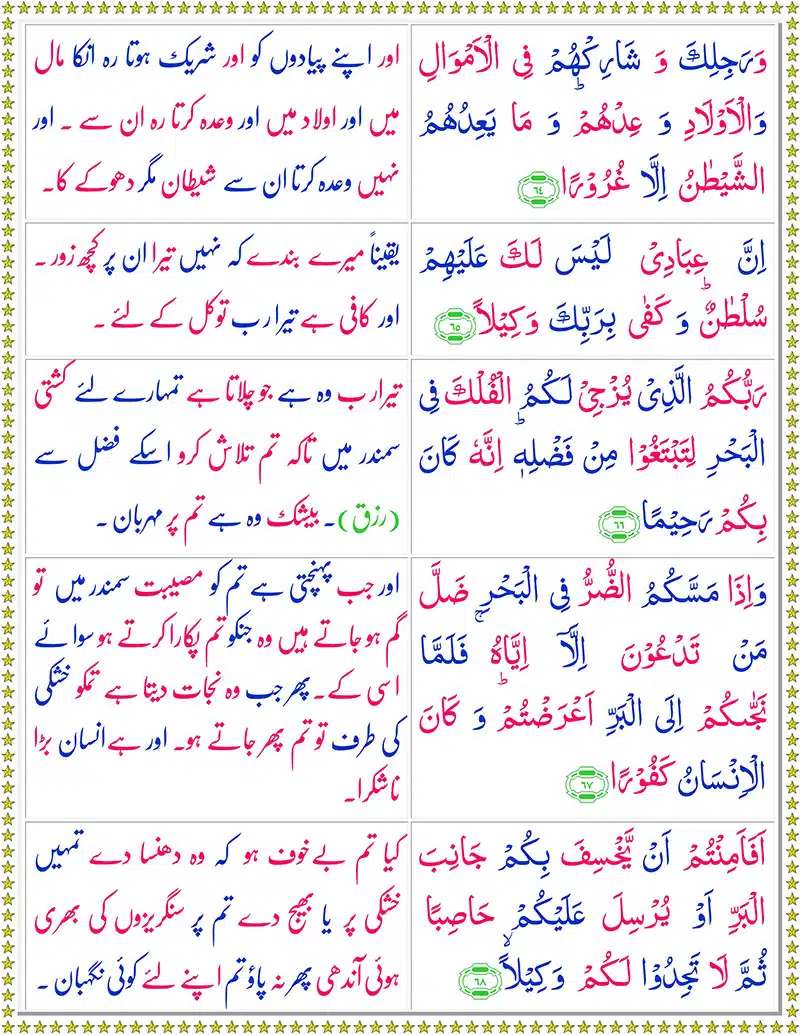 وَرَجِلِكَ وَ شَارِكْهُمْ فِى الْاَمْوَالِ
وَالْاَوْلَادِ وَ عِدْهُمْ ؕ وَ مَا يَعِدُهُمُ
الشَّيْطٰنُ اِلَّا غُرُوْرًا ۶۴
اور اپنے پیادوں کو اور شریک ہوتا رہ انکا مال
میں اور اولاد میں اور وعدہ کرتا رہ ان سے ۔ اور
نہیں وعدہ کرتا ان سے شیطان مگر دھوکے کا۔
اِنَّ عِبَادِىْ لَيْسَ لَكَ عَلَيْهِمْ
سُلْطٰنٌ ؕ وَ كَفٰى بِرَبِّكَ وَكِيْلًا ۶۵
یقیناً میرے بندے کہ نہیں تیرا ان پر کچھ زور ۔
اور کافی ہے تیرا رب توکل کے لئے ۔
رَبُّكُمُ الَّذِىْ يُزْجِىْ لَكُمُ الْفُلْكَ فِى
الْبَحْرِ لِتَبْتَغُوْا مِنْ فَضْلِهٖ ؕ اِنَّهٗ كَانَ
بِكُمْ رَحِيْمًا ۶۶
تیرا رب وہ ہے جو چلاتا ہے تمہارے لئے کشتی
سمندر میں تاکہ تم تلاش کرو اسکے فضل سے
(رزق)۔ بیشک وہ ہے تم پر مہربان ۔
وَاِذَا مَسَّكُمُ الضُّرُّ فِى الْبَحْرِ ضَلَّ
مَنْ تَدْعُوْنَ اِلَّاۤ اِيَّاهُ ۚ فَلَمَّا
نَجّٰىكُمْ اِلَى الْبَرِّ اَعْرَضْتُمْ ؕ وَ كَانَ
الْاِنْسَانُ كَفُوْرًا ۶۷
اور جب پہنچتی ہے تم کو مصیبت سمندر میں تو
گم ہو جاتے ہیں وہ جنکو تم پکارا کرتے ہو سوائے
اسی کے۔ پھر جب وہ نجات دیتا ہے تمکو خشکی
کی طرف تو تم پھر جاتے ہو۔ اور ہے انسان بڑا
ناشکرا۔
اَفَاَمِنْتُمْ اَنْ يَّخْسِفَ بِكُمْ جَانِبَ
الْبَرِّ اَوْ يُرْسِلَ عَلَيْكُمْ حَاصِبًا
ثُمَّ لَا تَجِدُوْا لَكُمْ وَكِيْلًا ۙ ۶۸
کیا تم بے خوف ہو کہ وہ دھنسا دے تمہیں
خشکی پر یا بھیج دے تم پر سنگریزوں کی بھری
ہوئی آندھی پھر نہ پاؤ تم اپنے لئے کوئی نگہبان ۔